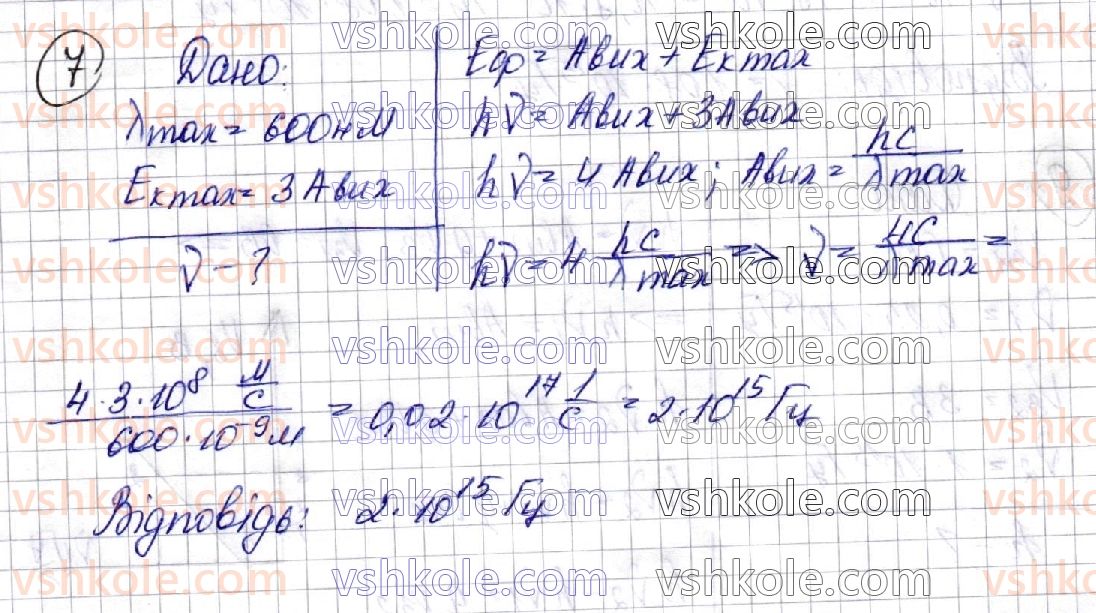 7 Дано:
λmax = 600нм
Eкmax = 3 Aвих
ν - ?
Eф = Aвих + Eкmax
hν = Aвих + 3Aвих
hν = 4 Aвих; Aвих = hc/λmax
hν = 4 hc/λmax => ν = 4c/λmax =
4·3·10⁸ м/с / 600·10⁻⁹м = 0,02·10¹⁷ 1/с = 2·10¹⁵ Гц
Відповідь: 2·10¹⁵ Гц
vshkole.com